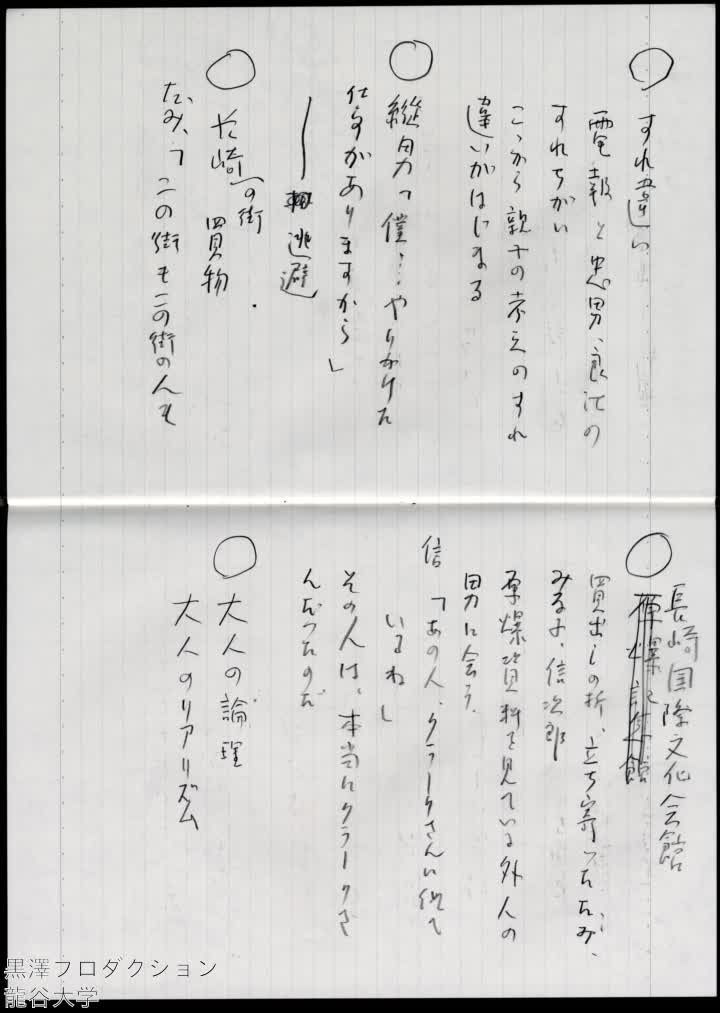 ○ すれ違い
電報と忠男、良江の
すれちがい
こゝから親子の考えのすれ
違いがはじまる
○ 縦男「僕…やりかけた
仕事がありますから」
── 逃避
○ 長崎の街
買物
たみ、「この街もこの街の人も
○ 長崎国際文化会館
買出しの折、立ち寄ったたみ、
みな子、信次郎
原爆資料を見ている外人の
男に会う。
信「あの人、クラークさんに似て
いるね」
その人は、本当にクラークさ
んだったのだ
○ 大人の論理
大人のリアリズム
黒澤プロダクション
龍谷大学